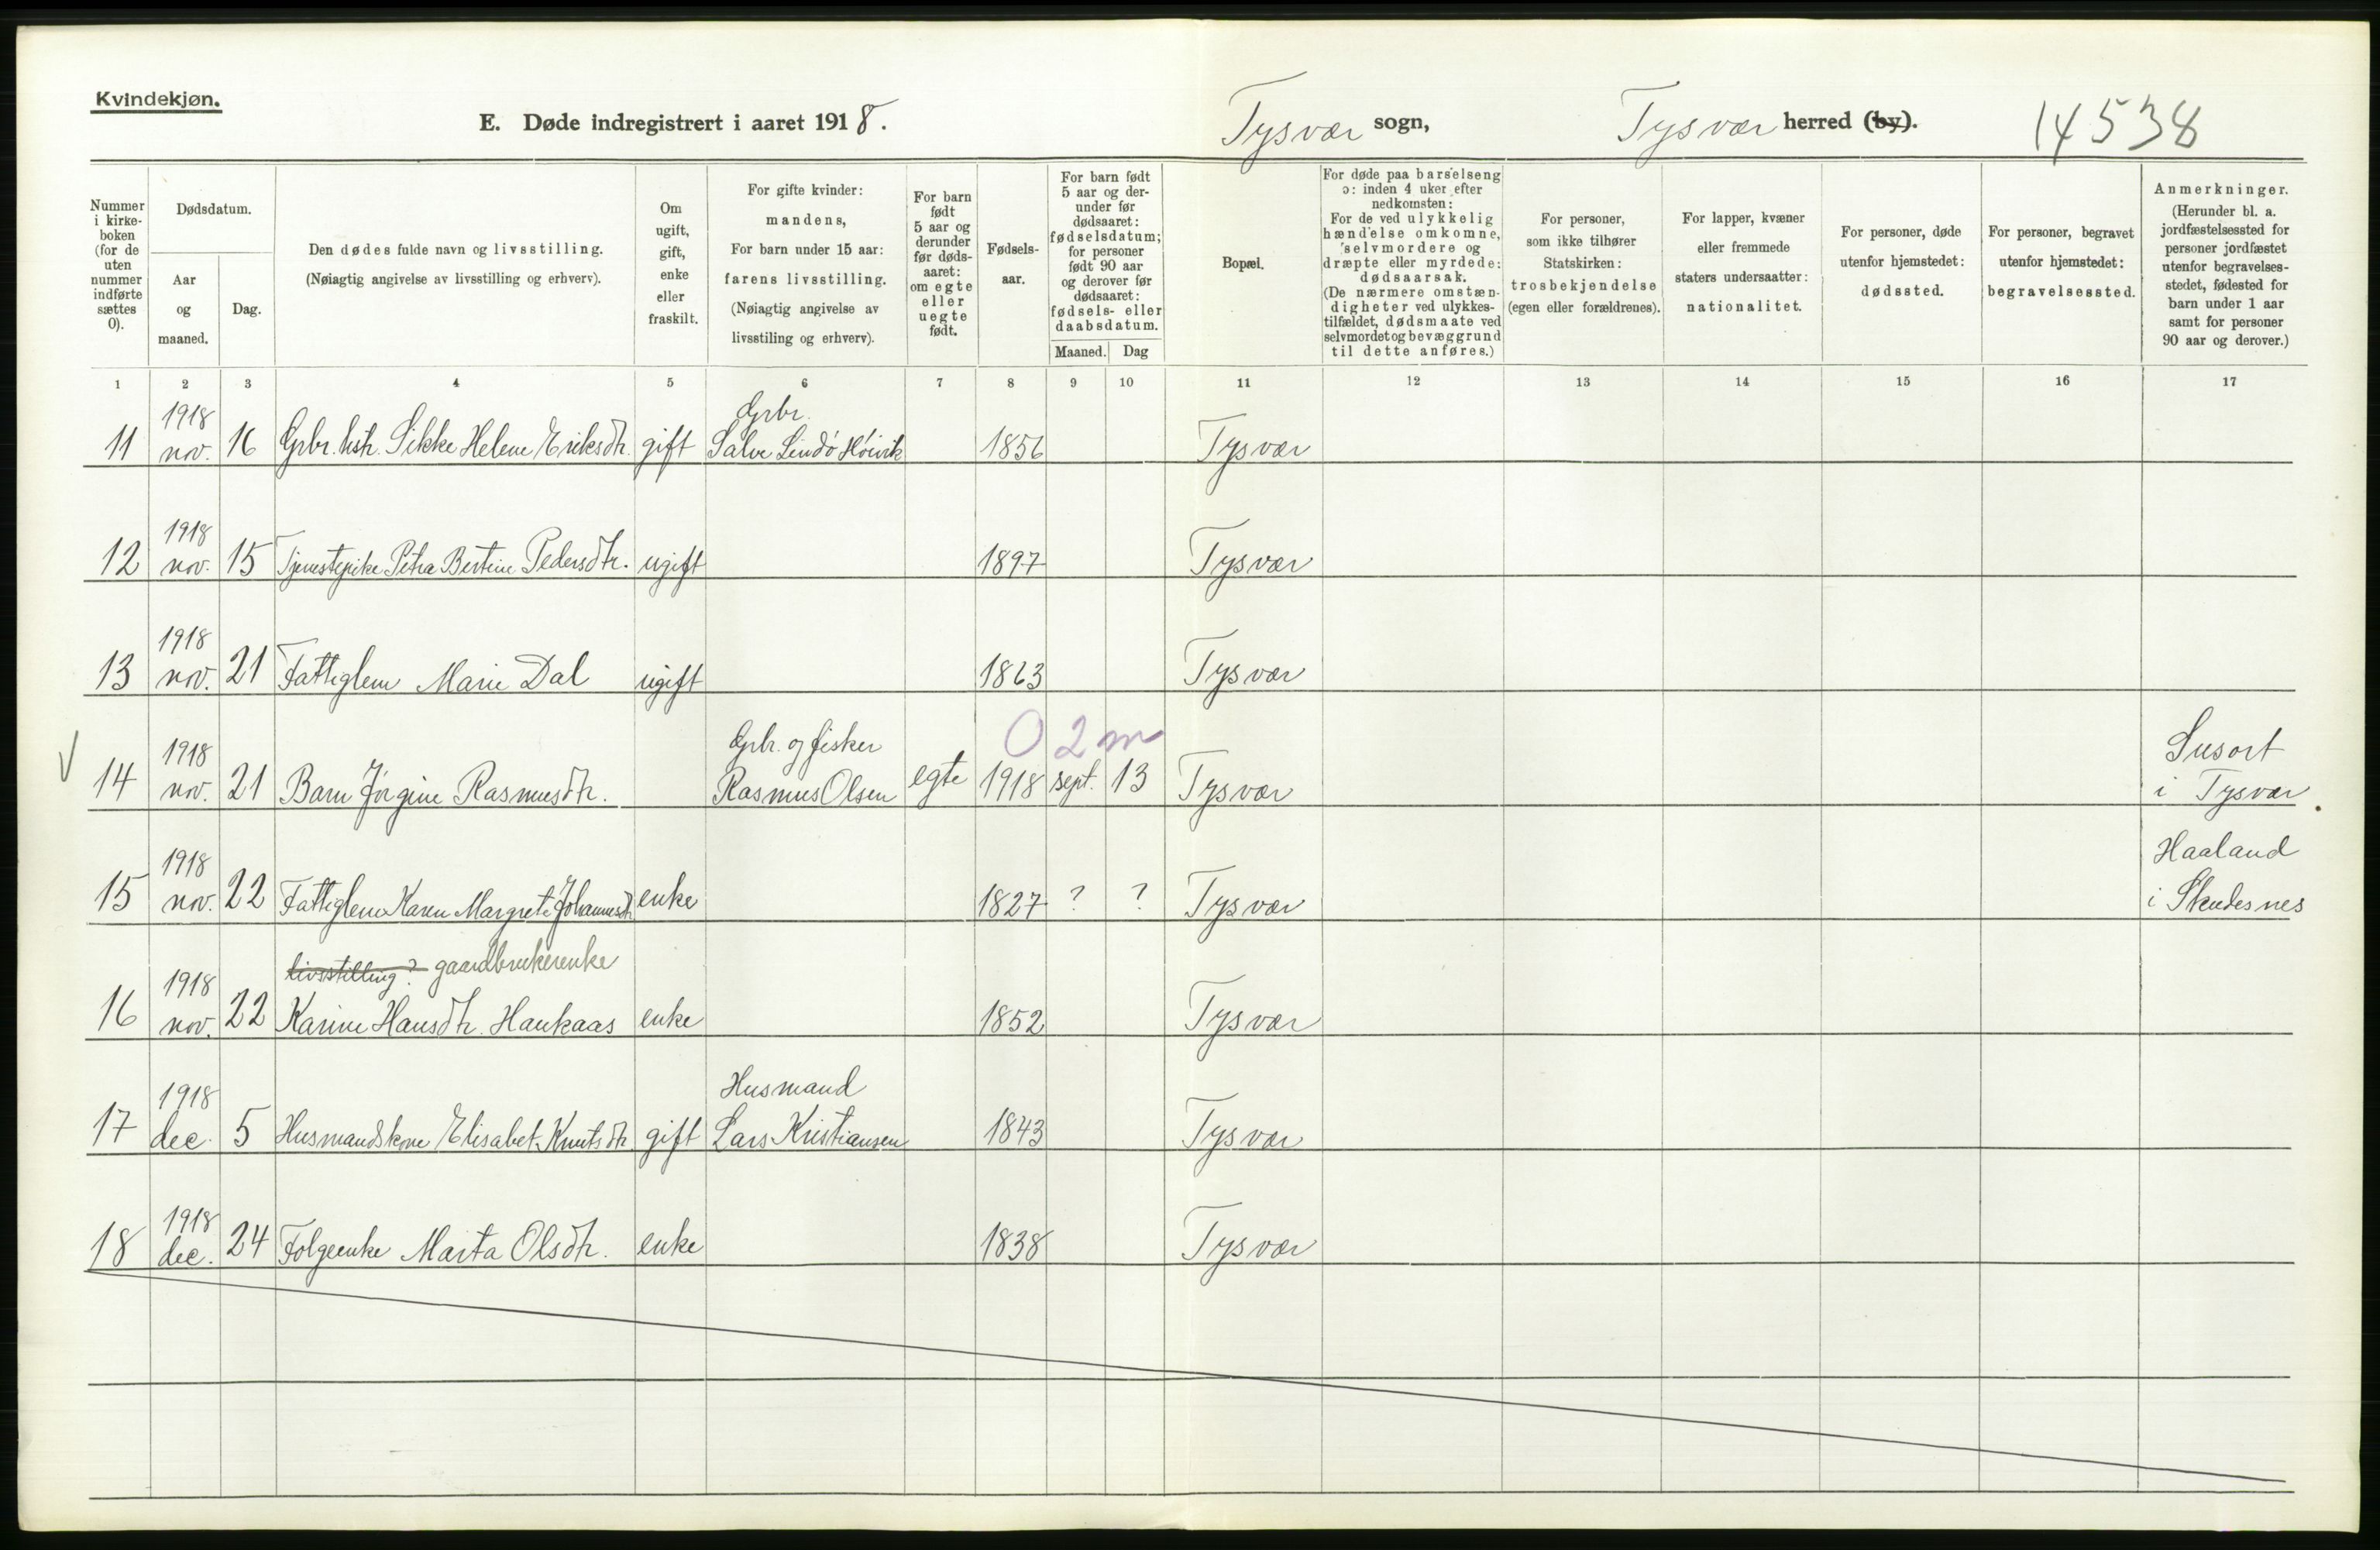 Kvindekjøn.
E. Døde indregistrert i aaret 1918.
Tysvær sogn,
Tysvær herred (by).
14538
Nummer i kirke-boken (for de uten nummer indførte sættes 0).
Dødsdatum.
Aar og maaned.
Dag.
Den dødes fulde navn og livsstilling.
(Nøiagtig angivelse av livsstilling og erhverv).
Om ugift, gift, enke eller fraskilt.
For gifte kvinder: mandens,
For barn under 15 aar: farens livsstilling.
(Nøiagtig angivelse av livsstiling og erhverv).
For barn født 5 aar og derunder før døds-aaret: om egte eller uegte født.
Fødsels-aar.
For barn født 5 aar og der-under før dødsaaret: fødselsdatum; for personer født 90 aar og derover før dødsaaret: fødsels- eller daabsdatum.
Maaned.
Dag
Bopæl.
For døde paa barselseng ɔ: inden 4 uker efter nedkomsten:
For de ved ulykkelig hændelse omkomne, selvmordere og dræpte eller myrdede: dødsaarsak.
(De nærmere omstæn-digheter ved ulykkes-tilfældet, dødsmaate ved selvmordet og bevæggrund til dette anføres.)
For personer, som ikke tilhører Statskirken: trosbekjendelse (egen eller forældrenes).
For lapper, kvæner eller fremmede staters undersaatter: nationalitet.
For personer, døde utenfor hjemstedet: dødssted.
For personer, begravet utenfor hjemstedet: begravelsessted.
Anmerkninger.
(Herunder bl. a. jordfæstelsessted for personer jordfæstet utenfor begravelses-stedet, fødested for barn under 1 aar samt for personer 90 aar og derover.)
1 2 3 4 5 6 7 8 9 10 11 12 13 14 15 16 17
1918 Grbr.
11 nov. 16 Grbr. hstr. Sikke Helene Eriksdtr. gift Salve Lindø Høivik 1856 Tysvær
1918
12 nov. 15 Tjenestepike Petra Bertine Pedersdtr. ugift 1897 Tysvær
1918
13 nov. 21 Fattiglem Marie Dal ugift 1863 Tysvær
1918 Grbr. og fisker 0 2 m Susort
14 nov. 21 Barn Jørgine Rasmusdtr. Rasmus Olsen egte 1918 sept. 13 Tysvær i Tysvær.
1918 Haaland
15 nov. 22 Fattiglem Karen Margrete Johannesdtr enke 1827 ? ? Tysvær i Skudesnes
1918 livsstilling? gaardbrukerenke
16 nov. 22 Karine Hansdtr. Haukaas enke 1852 Tysvær
1918 Husmand
17 dec. 5 Husmandskone Elisabet Knutsdtr. gift Lars Kristiansen 1843 Tysvær
1918
18 dec. 24 Folgeenke Marta Olsdtr. enke 1838 Tysvær